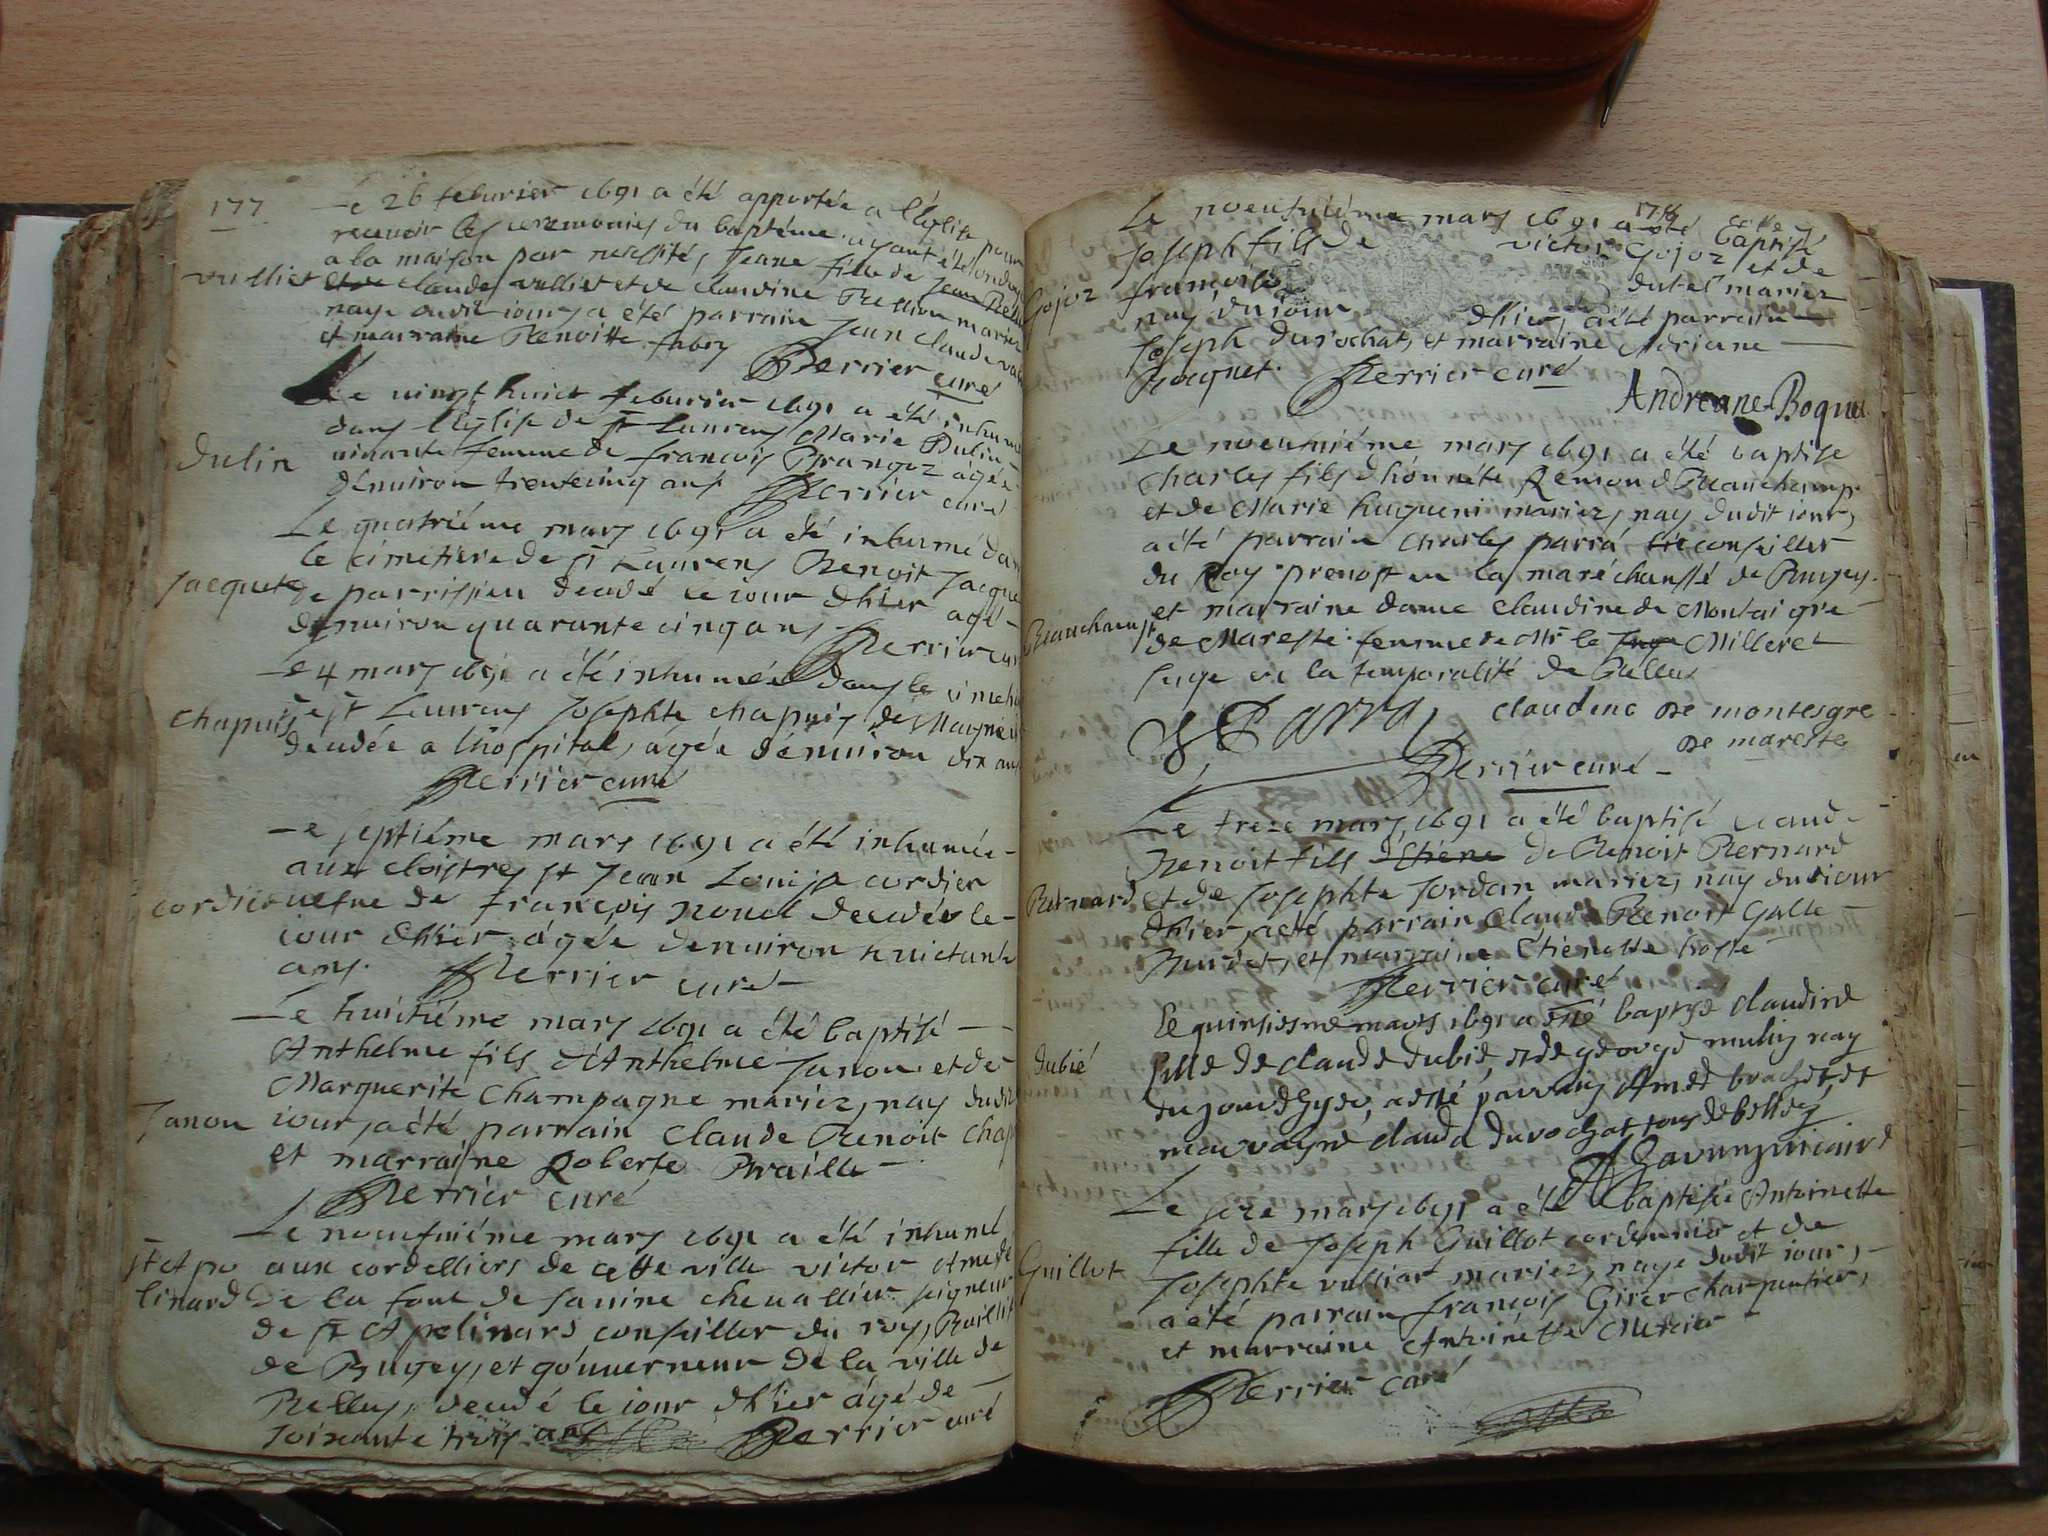 177
Le 26 feburier 1691 a été apportée a l'église pour
recevoir les ceremonies du baptéme ayant été ondoyé
a la maison par necessité, Jeane fille de Jean
vulliet
claude vulliet et de claudine mariez
naye dudit iour, a été parrain Jean claude
et marraine Benoitte
Perrier curé
Le vingt huict feburier 1691 a été inhumé
dans l'eglise de st Laurens Marie Dulin
Dulin
vivante femme de françois Brangoz agée
d'enuiron trentecinq ans Perrier curé
Le quatriéme mars 1691 a été inhumé dans
le cimetiere de st Laurens Benoit Jacque
Jacquete
de parrissieu decedé le iour d'hier agé
d'enuiron quarante cinq ans Perrier curé
Le 4 mars 1691 a été inhumée dans le
chapuis
de st Laurens Josephte chapuis de
decedée a l'hospital, agée d'enuiron dix ans
Perrier curé
Le septiéme mars 1691 a été inhumée
aux cloistres st Jean Louise cordier
cordier
uefue de françois decedée le
iour d'hier agée denuiron huictante
ans. Perrier curé
Le huitiéme mars 1691 a été baptisé
Anthelme fils d'Anthelme Janou et de
Marguerite Champagne mariez, nay dudit
Janou
iour, a été parrain Claude Benoit
et marraine Roberte Braille
Perrier curé
Le neufuiéme mars 1691 a été inhumé
st Apo
linard
aux cordelliers de cette ville victor Amedé
de la font de sauine cheuallier seigneur
de st Apolinard conseiller du roy, Baillif
de Bugey, et gouuerneur de la ville de
Belley, decedé le iour d'hier agé de
soixante trois ans Perrier curé
178
Le neufuiéme mars 1691 a été baptisé
Joseph fils de victor Gojoz et de
Gojoz
françoise dutel mariez
nay du iour d'hier, a été parrain
Joseph durochat, et marraine Adriane
Bocquet. Perrier curé
Andreane Boquet
Le neuuniéme mars 1691 a été baptise
Charles fils d'honnéte Remond Beauchamp
et de Marie hugueni mariez, nay dudit iour,
a été parrain Charles parra conseiller
du Roy preuost en la maréchaussé de Bugey
Beauchamp
et marraine dame claudine de Montaigre
de Mareste femme de Mr le Juge Milleret
Juge en la temporalité de Belley
Parra
claudine de montesgre
de mareste
Perrier curé
Le treze mars 1691 a été baptisé claude
Benoit fils d'Etiene de Benoit Bernard
Bernard
et de Josephte Jordan mariez, nay du iour
d'hier, a été parrain Claude Benoit Galle
et marraine Etienette
Perrier curé
Le quinsiesme mars 1691 a esté baptysé claudine
dubié
fille de claude dubié, et de george mulin nay
du jour dhyer, a esté parrain Amed brachet, et
marrayne clauda durochat tous de belley
vicaire
Le seze mars 1691 a été baptisée Antoinette
fille de Joseph Guillot cordonnier et de
Guillot
Josephte vulliat mariez, naye dudit iour,
a été parrain françois Girer charpentier,
et marraine Antoinette Mercier
Perrier curé